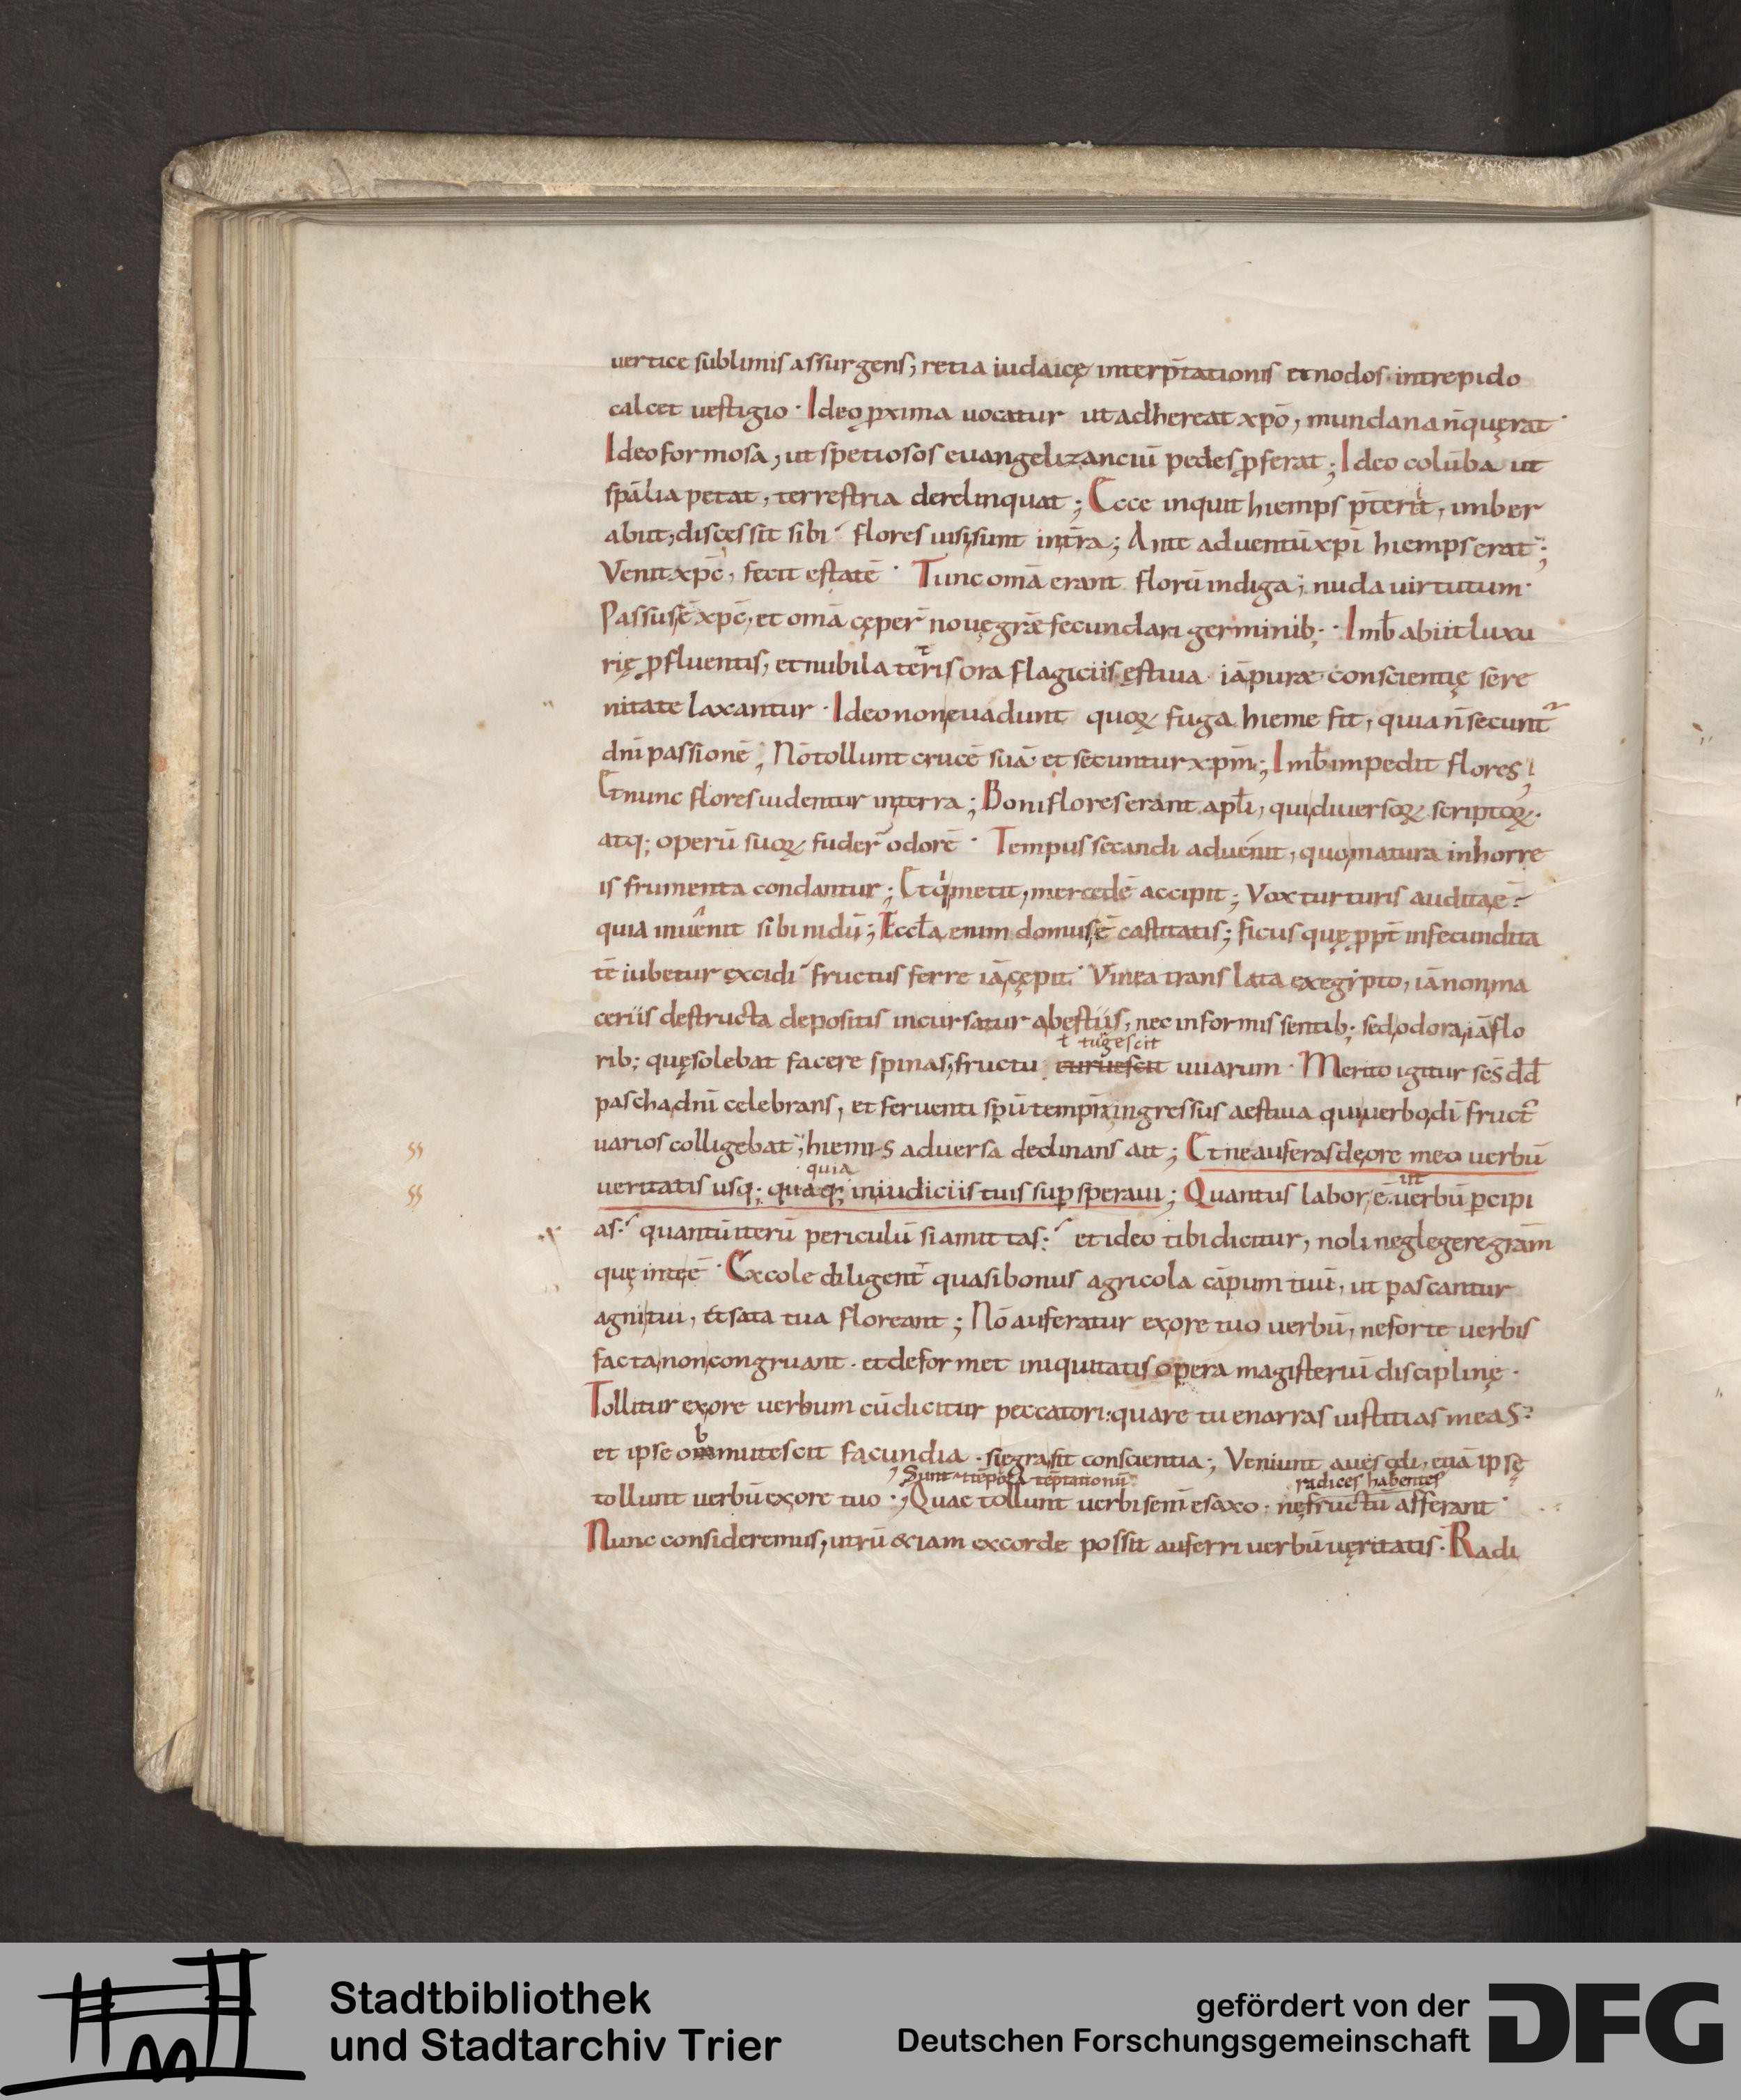 uertice sublimis assurgens, retia iudaicę interp̄tationis et nodos intrepido
calcet uestigio · Ideo ꝓxima uocatur ut adhereat xp̄o, mundana n̄ quęrat ·
Ideo formosa, ut spetiosos euangelizanciū pedes p̱ferat ; Ideo colūba ut
sp̄alia petat, terrestria derelinquat ; Ecce inquit hiemps p̄terit, imber
abiit, discessit sibi flores uisi sunt in t̄ra ; Ante aduentū xp̄i hiemps erat ;
Venit xp̄c, fecit estatē · Tunc om̄a erant florū indiga, nuda uirtutum ·
Passus ē xp̄c, et om̄a cęper̄ nouę gr̄æ fecundari germinib; · Imb̄ abiit luxu
rię ꝓfluentis, et nubila tetris ora flagiciis ęstiua iā puræ conscientię sere
nitate laxantur · Ideo non euadunt quoꝝ fuga hieme fit, quia n̄ secunt᷑
dn̄i passionē ; Nō tollunt crucē suā et secuntur xp̄m ; Imb̄ impedit flores ;
Et nunc flores uidentur in terra ; Boni flores erant apl̄i, qui diuersoꝝ scriptoꝝ ·
atq; operū suoꝝ fuder̄ odorē · Tempus secandi aduenit, quo matura inhorre
is frumenta condantur ; Et q̇ metit, mercedē accipit ; Vox turturis audita ē
quia inuenit sibi nidū ; Eccl̄a enim domus ē castitatis ; ficus quę ꝓpt̄ infecundita
tē iubetur excidi fructus ferre iā cępit · Vinea translata ex egipto, iā non ma
ceriis destructa depositis incursatur a bestiis, nec informis sentib; sed odora iā flo
ł turgescit
rib; quę solebat facere spinas, fructu turuescit uuarum · Merito igitur sc̄s dd̄
pascha dn̄i celebrans, et feruenti sp̄u tempīa ingressus aestiua qui uerbo dī fruct᷑
uarios colligebat, hiemis aduersa declinans ait ; Et ne auferas de ore meo uerbū
quia
ueritatis usq; quaq; in iudiciis tuis sup̱speraui ; Quantus labor ē ut uerbū p̱cipi
as quantū iterū periculū si amittas et ideo tibi dicitur, noli neglegere gr̄am
quę in te ē · Excole diligent᷑ quasi bonus agricola cāpum tuū, ut pascantur
agni tui, et sata tua floreant ; Nō auferatur ex ore tuo uerbū, ne forte uerbis
facta non congruant · et deformet iniquitatis opera magisteriū disciplinę ·
Tollitur ex ore uerbum cū dicitur peccatori: quare tu enarras iustitias meas
et ipse obmutescit facundia · si ęgra sit conscientia ; Veniunt aues cęli, etiā ipsę
Sunt & tēpora tēptationū radices habentes
tollunt uerbū ex ore tuo · Quae tollunt uerbi semē e saxo · ne fructū afferant ·
Nunc consideremus, utrū & iam ex corde possit auferri uerbū ueritatis · Radi
Stadtbibliothek
und Stadtarchiv Trier
gefördert von der
Deutschen Forschungsgemeinschaft
DFG